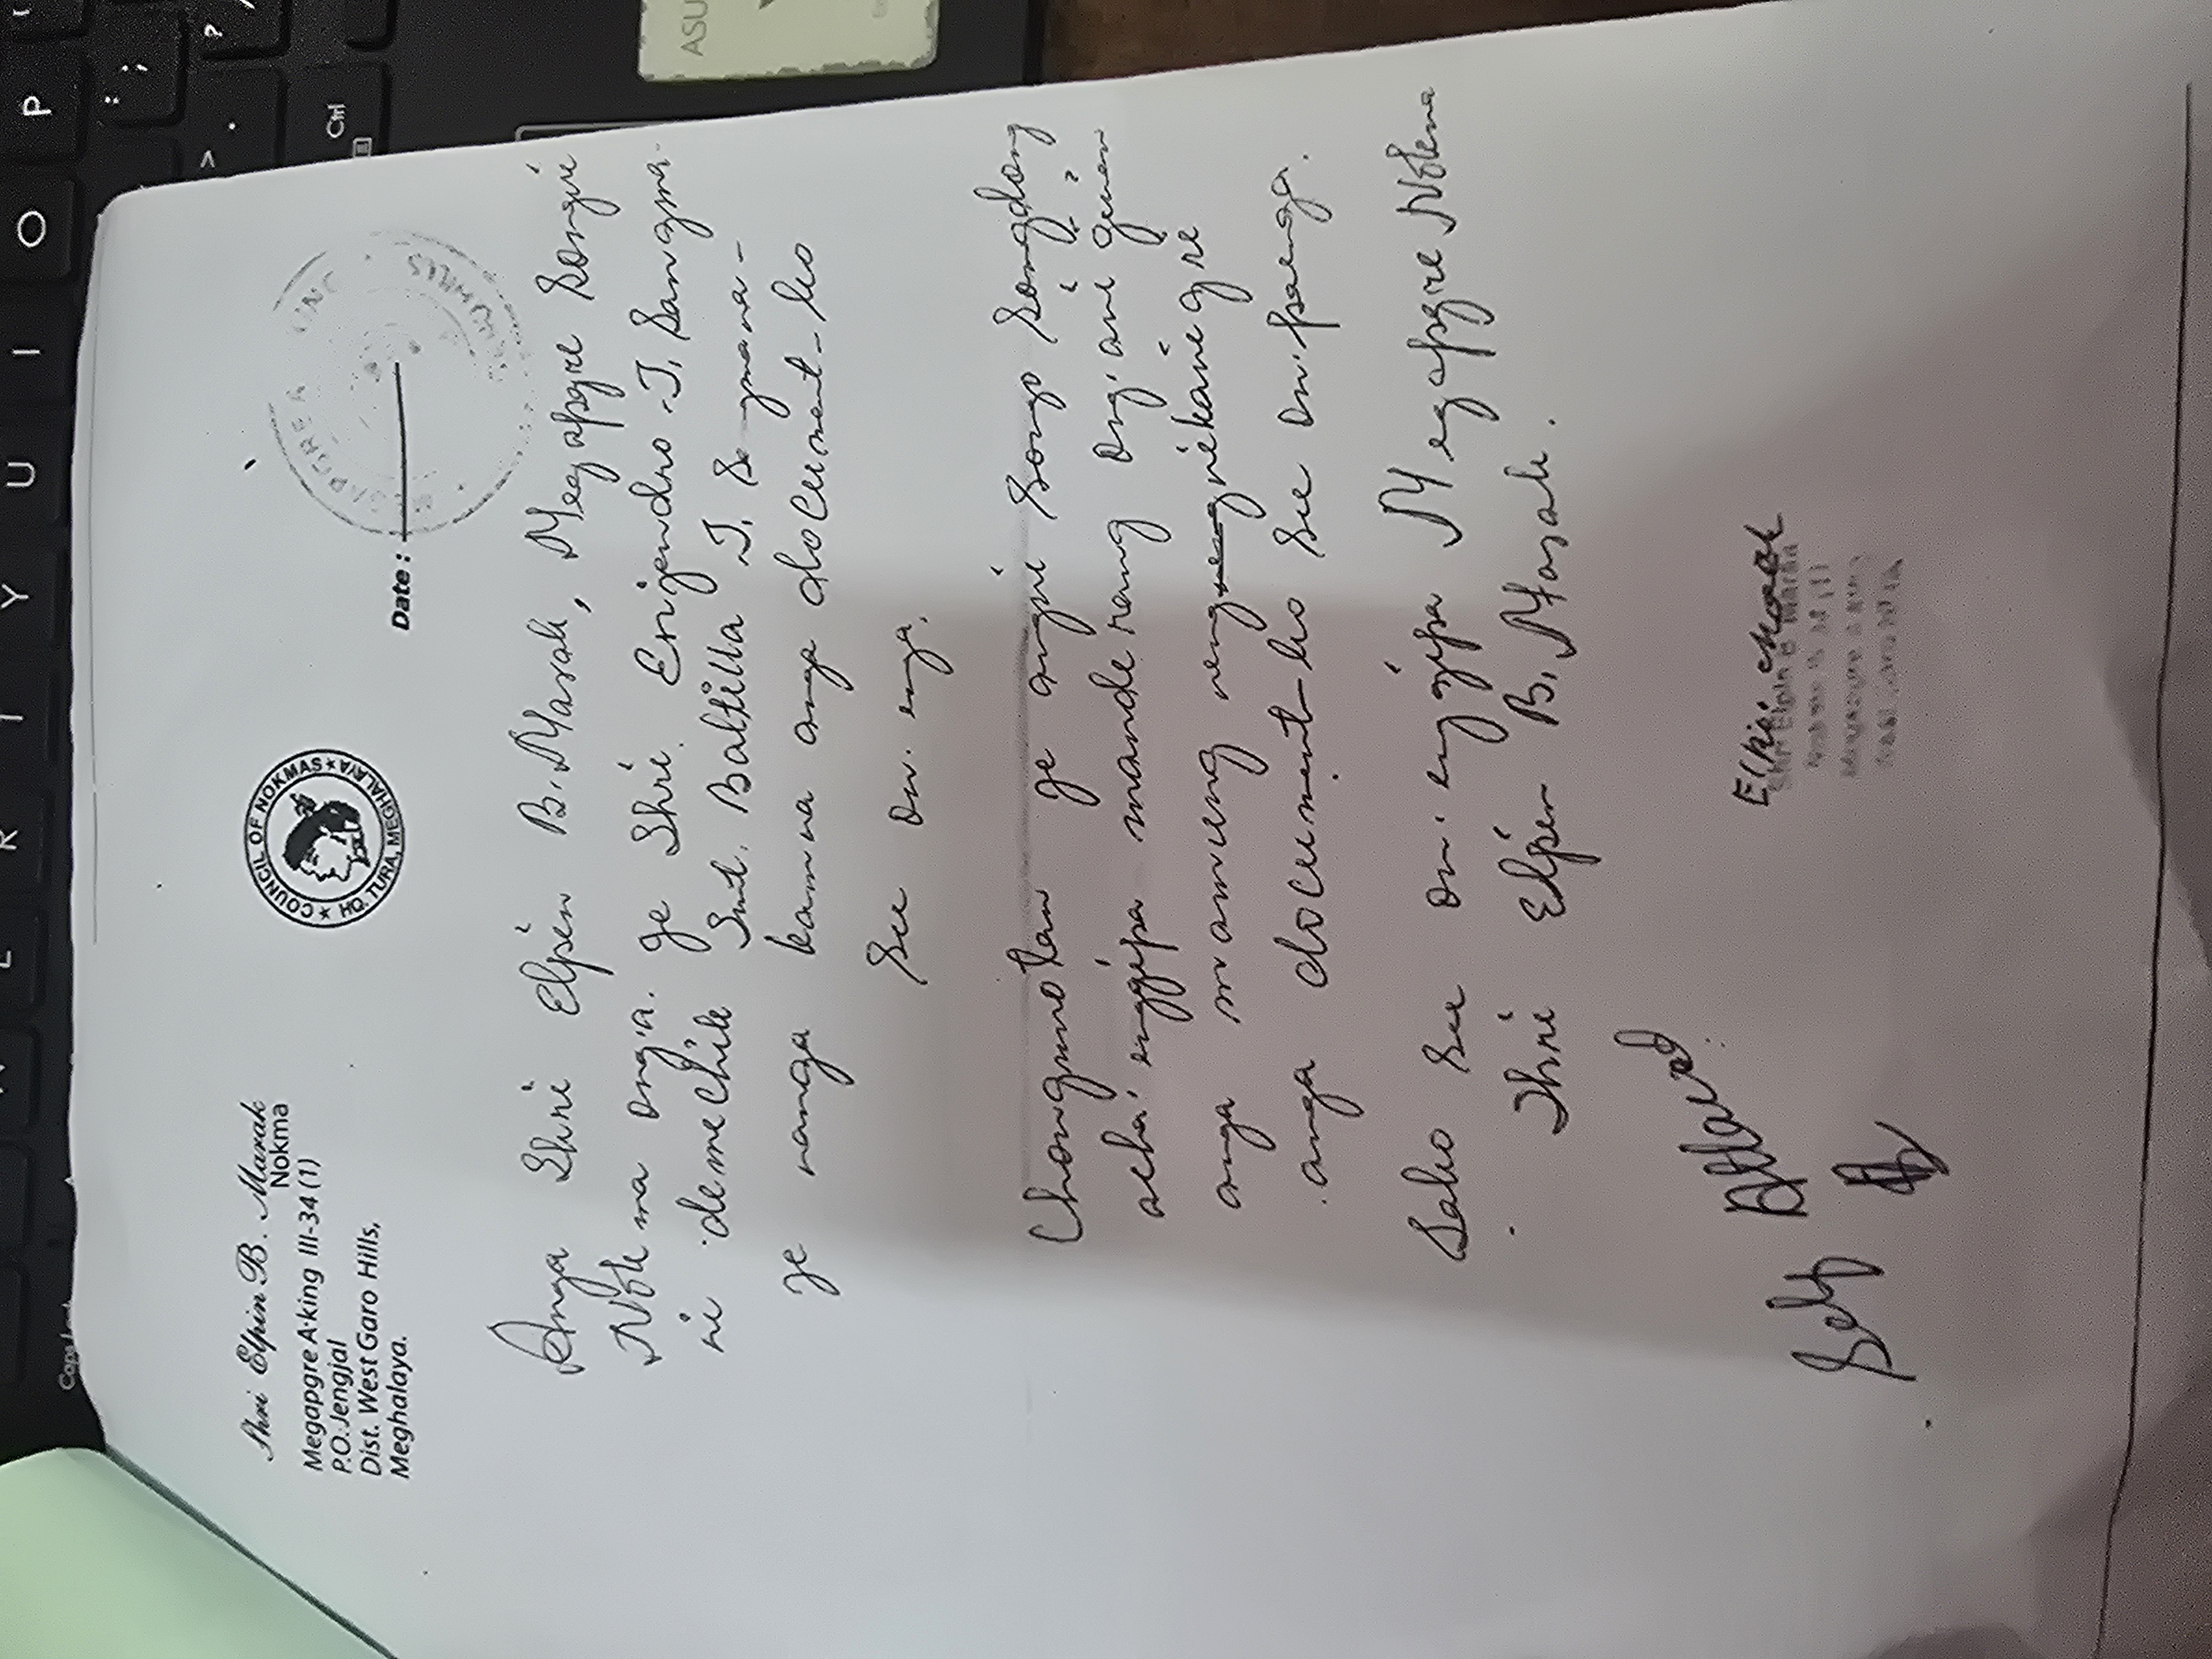 Shri Elpin B. Marak
Nokma
Megapgre A·king III-34 (1)
P.O. Jengjal
Dist. West Garo Hills,
Meghalaya.
COUNCIL OF NOKMAS
HQ. TURA, MEGHALAYA
Date :
Anga Shri Elpin B. Marak, Megapgre Songni
Nokma ong'a. Je Shri. Enjendro T. Sangma-
ni demechik Smt. Baltilla T. Sangmana-
je nanga kamna anga document-ko
See on·enga.
Chongmotan je angni Songo Songdong
acha·enggipa manderang ong'ani gimin
anga mamung nengnikanigre
anga document-ko See on·paenga.
Sako See on·enggipa Megapgre Nokma
Shri Elpin B. Marak.
Elpin Marak
Shri Elpin B Marak
ASU
P
O
I
U
Y
Ctrl